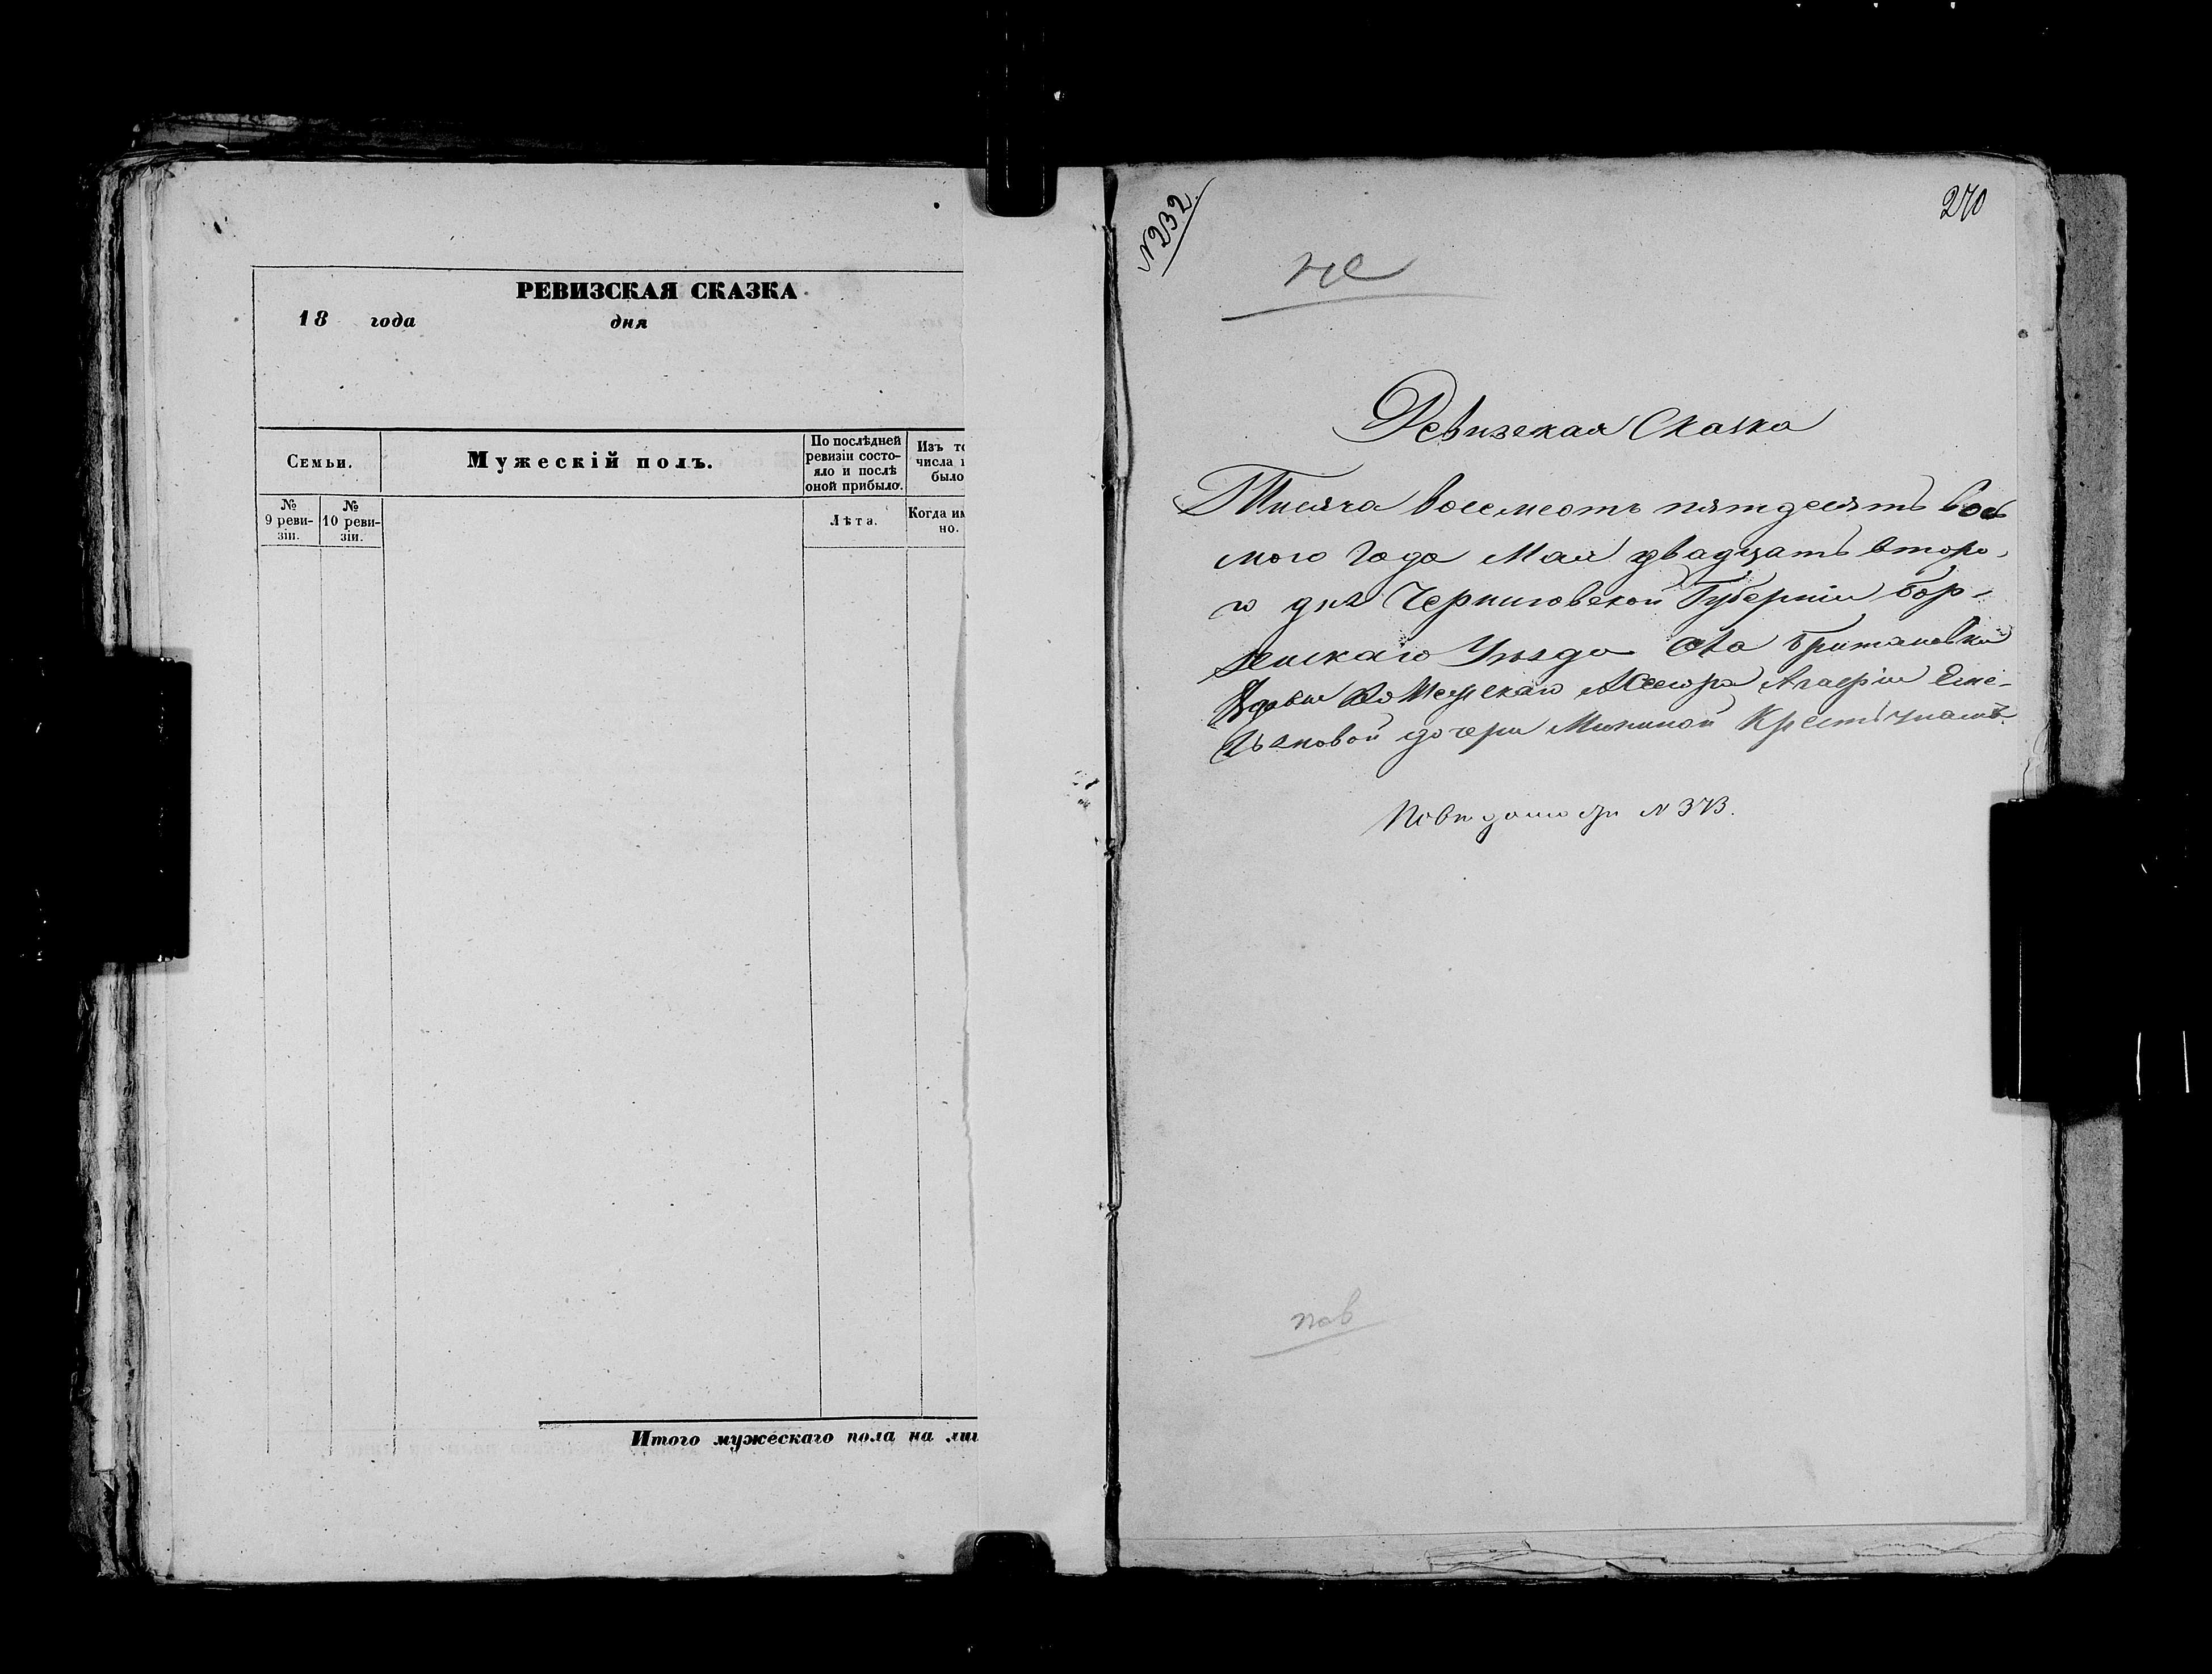 РЕВИЗСКАЯ СКАЗКА
18 года дня
Семьи.
Мужескій полъ.
По послѣдней
ревизіи состо-
яло и послѣ
оной прибыло.
Изъ то
числа
было
№
9 реви-
зіи.
№
10 реви-
зіи.
Лѣта.
Когда им
но.
Итого мужескаго пола на ли
N 232.
270
Ревизская Сказка
Тысяча восемсотъ пятдесятъ вось
мого года Мая двадцатъ второ-
го дня Черниговской Губерніи Бор-
зенскаго Уѣзда Села Британовки
Вдовы Колежскаго Асесора Агафіи Еме-
льяновой дочери Мининой Крестьянамъ
По вѣдомости N 373.
пов